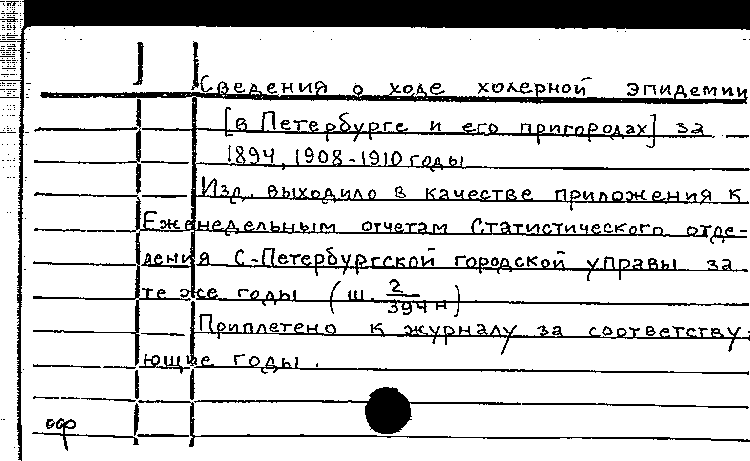 Сведения о ходе холерной эпидемии
[в Петербурге и его пригородах] за
1894, 1908-1910 годы
Изд. выходило в качестве приложения к
Еженедельным отчетам Статистического отде-
ления С.-Петербургской городской управы за
те же годы (ш. 2/394н)
Приплетено к журналу за соответству-
ющие годы.